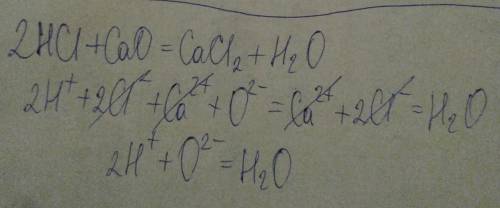 2HCl+CaO=CaCl₂+H₂O
2H⁺+2Cl⁻+Ca²⁺+O²⁻=Ca²⁺+2Cl⁻=H₂O
2H⁺+O²⁻=H₂O